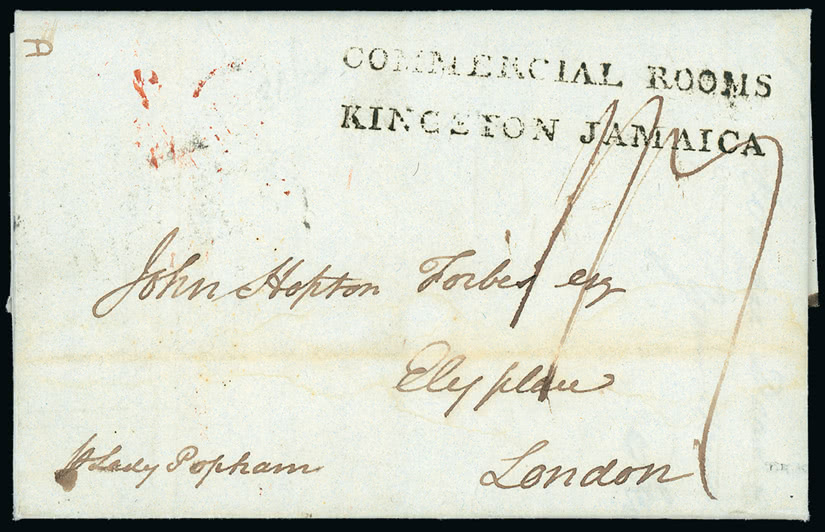 A
COMMERCIAL ROOMS
KINGSTON JAMAICA
1/7
John Hopton Forbes esq
Ely place
London
p Lady Popham